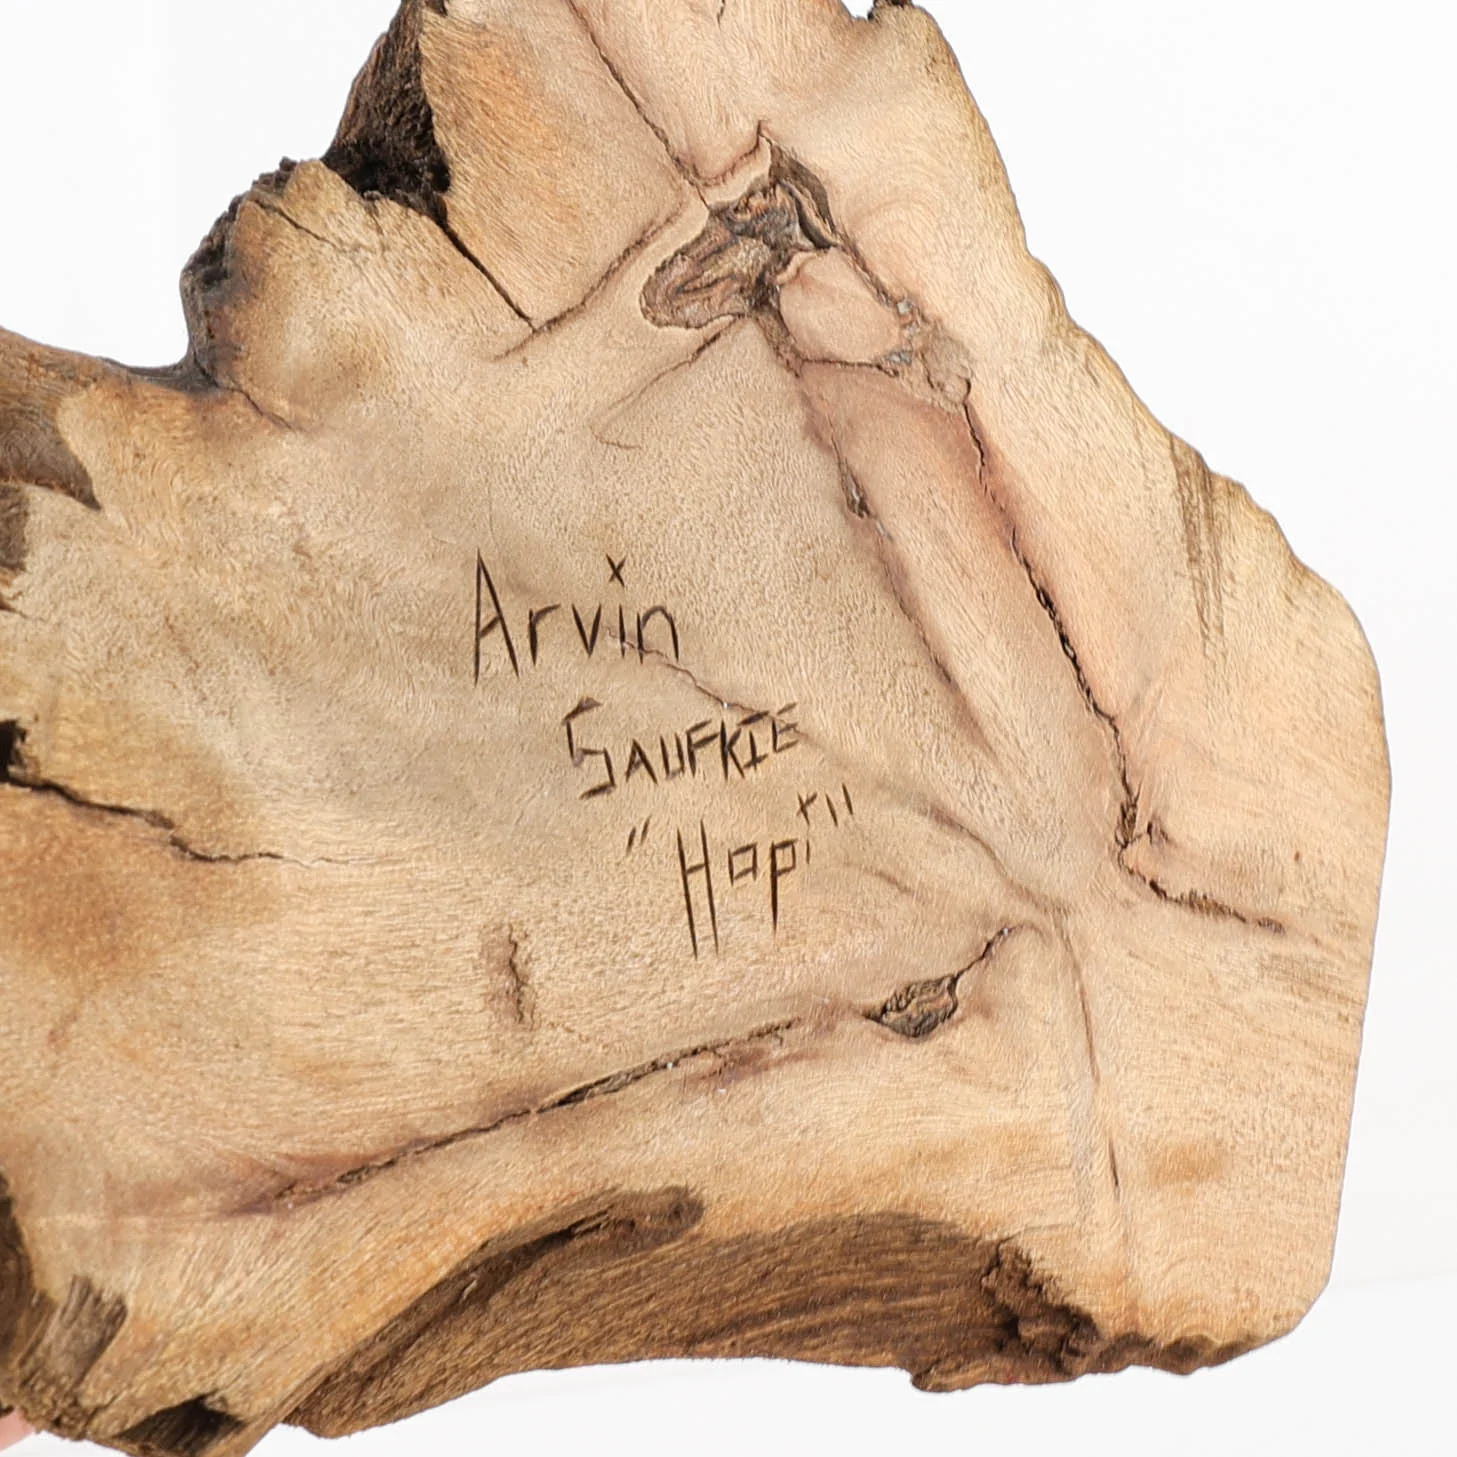 Arvin
SAUFKIE
"Hopi"